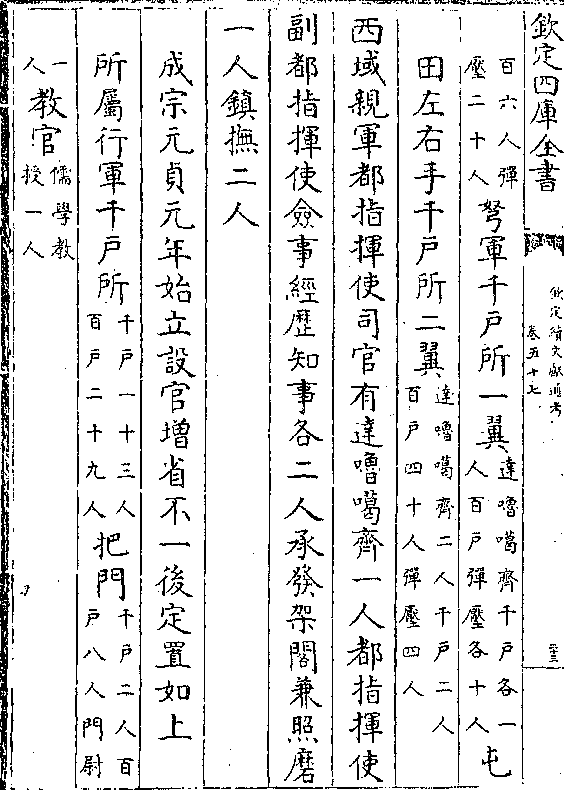 欽定四庫全書
欽定續文獻通考
卷五十七
二十三
百六人彈
壓二十人
弩軍千戶所一翼
達嚕噶齊千戶各一
人百戶彈壓各十人
屯
田左右手千戶所二翼
達嚕噶齊二人千戶二人
百戶四十人彈壓四人
西域親軍都指揮使司官有達嚕噶齊一人都指揮使
副都指揮使僉事經歷知事各二人承發架閣兼照磨
一人鎮撫二人
成宗元貞元年始立設官增省不一後定置如上
所屬行軍千戶所
千戶一十三人
百戶二十九人
把門
千戶二人百
戶八人門尉
一
人
教官
儒學教
授一人